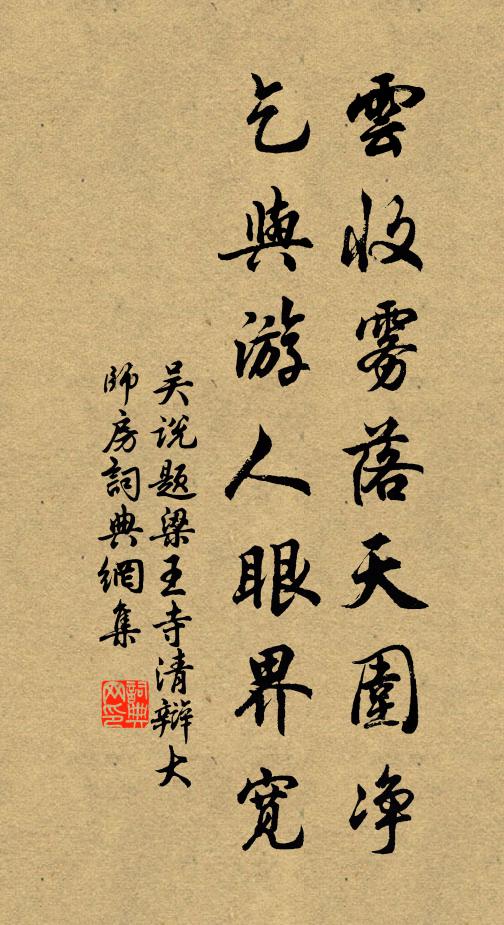 雲收雾落天圍净
乞與游人眼界寬
吴说题梁王寺清辯大
師房詞典網集
詞典网印